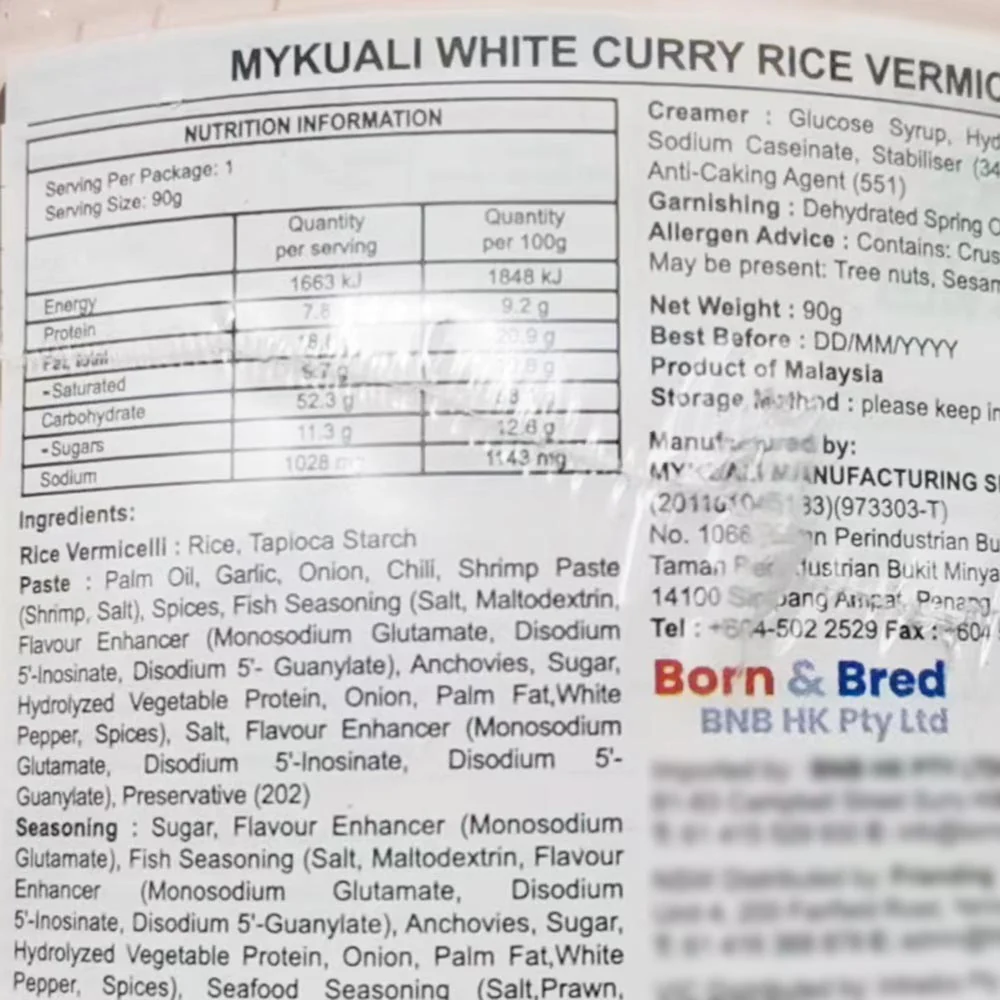 MYKUALI WHITE CURRY RICE VERMIC
NUTRITION INFORMATION
Serving Per Package: 1
Serving Size: 90g
Quantity per serving Quantity per 100g
Energy 1663 kJ 1848 kJ
Protein 7.8 9.2 g
Fat, total
-Saturated
Carbohydrate 52.3 g
-Sugars 11.3 g 12.6 g
Sodium 1028 mg 1143 mg
Ingredients:
Rice Vermicelli : Rice, Tapioca Starch
Paste : Palm Oil, Garlic, Onion, Chili, Shrimp Paste
(Shrimp, Salt), Spices, Fish Seasoning (Salt, Maltodextrin,
Flavour Enhancer (Monosodium Glutamate, Disodium
5'-Inosinate, Disodium 5'- Guanylate), Anchovies, Sugar,
Hydrolyzed Vegetable Protein, Onion, Palm Fat,White
Pepper, Spices), Salt, Flavour Enhancer (Monosodium
Glutamate, Disodium 5'-Inosinate, Disodium 5'-
Guanylate), Preservative (202)
Seasoning : Sugar, Flavour Enhancer (Monosodium
Glutamate), Fish Seasoning (Salt, Maltodextrin, Flavour
Enhancer (Monosodium Glutamate, Disodium
5'-Inosinate, Disodium 5'-Guanylate), Anchovies, Sugar,
Hydrolyzed Vegetable Protein, Onion, Palm Fat,White
Pepper, Spices), Seafood Seasoning (Salt,Prawn,
Creamer : Glucose Syrup, Hyd
Sodium Caseinate, Stabiliser (34
Anti-Caking Agent (551)
Garnishing : Dehydrated Spring O
Allergen Advice : Contains: Crus
May be present: Tree nuts, Sesam
Net Weight : 90g
Best Before : DD/MM/YYYY
Product of Malaysia
Storage Method : please keep in
Manufactured by:
MYKUALI MANUFACTURING S
(973303-T)
No. 1066 Perindustrian Bu
Taman Bukit Minya
14100 Simpang Ampat, Penang
Tel : +604-502 2529 Fax : +604
Born & Bred
BNB HK Pty Ltd